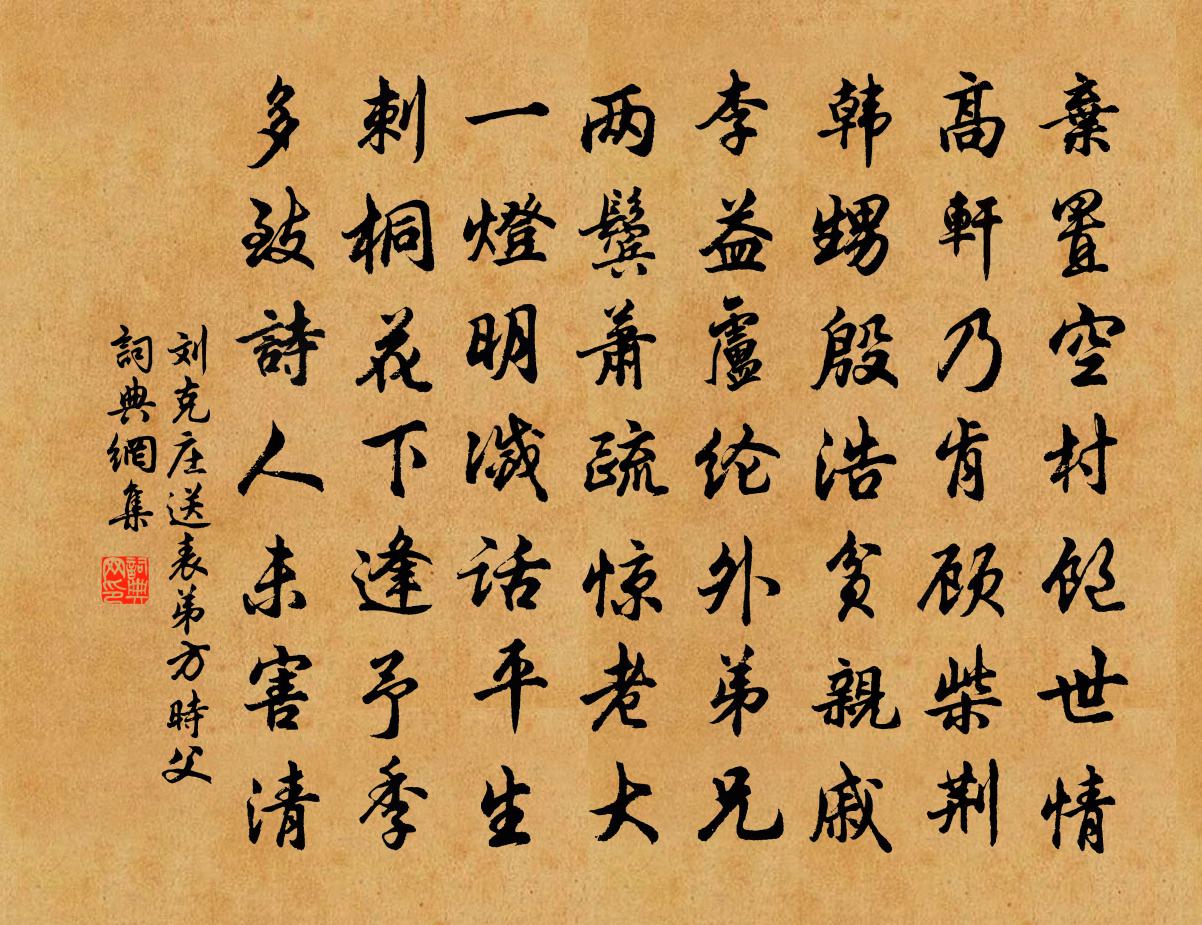 棄置空村飽世情
髙軒乃肯顾柴荆
韩甥殷浩贫親戚
李益盧纶外弟兄
两鬓萧疏惊老大
一燈明滅话平生
刺桐花下逢予季
多致詩人未害清
刘克庄送表弟方時父
詞典網集
詞典网印